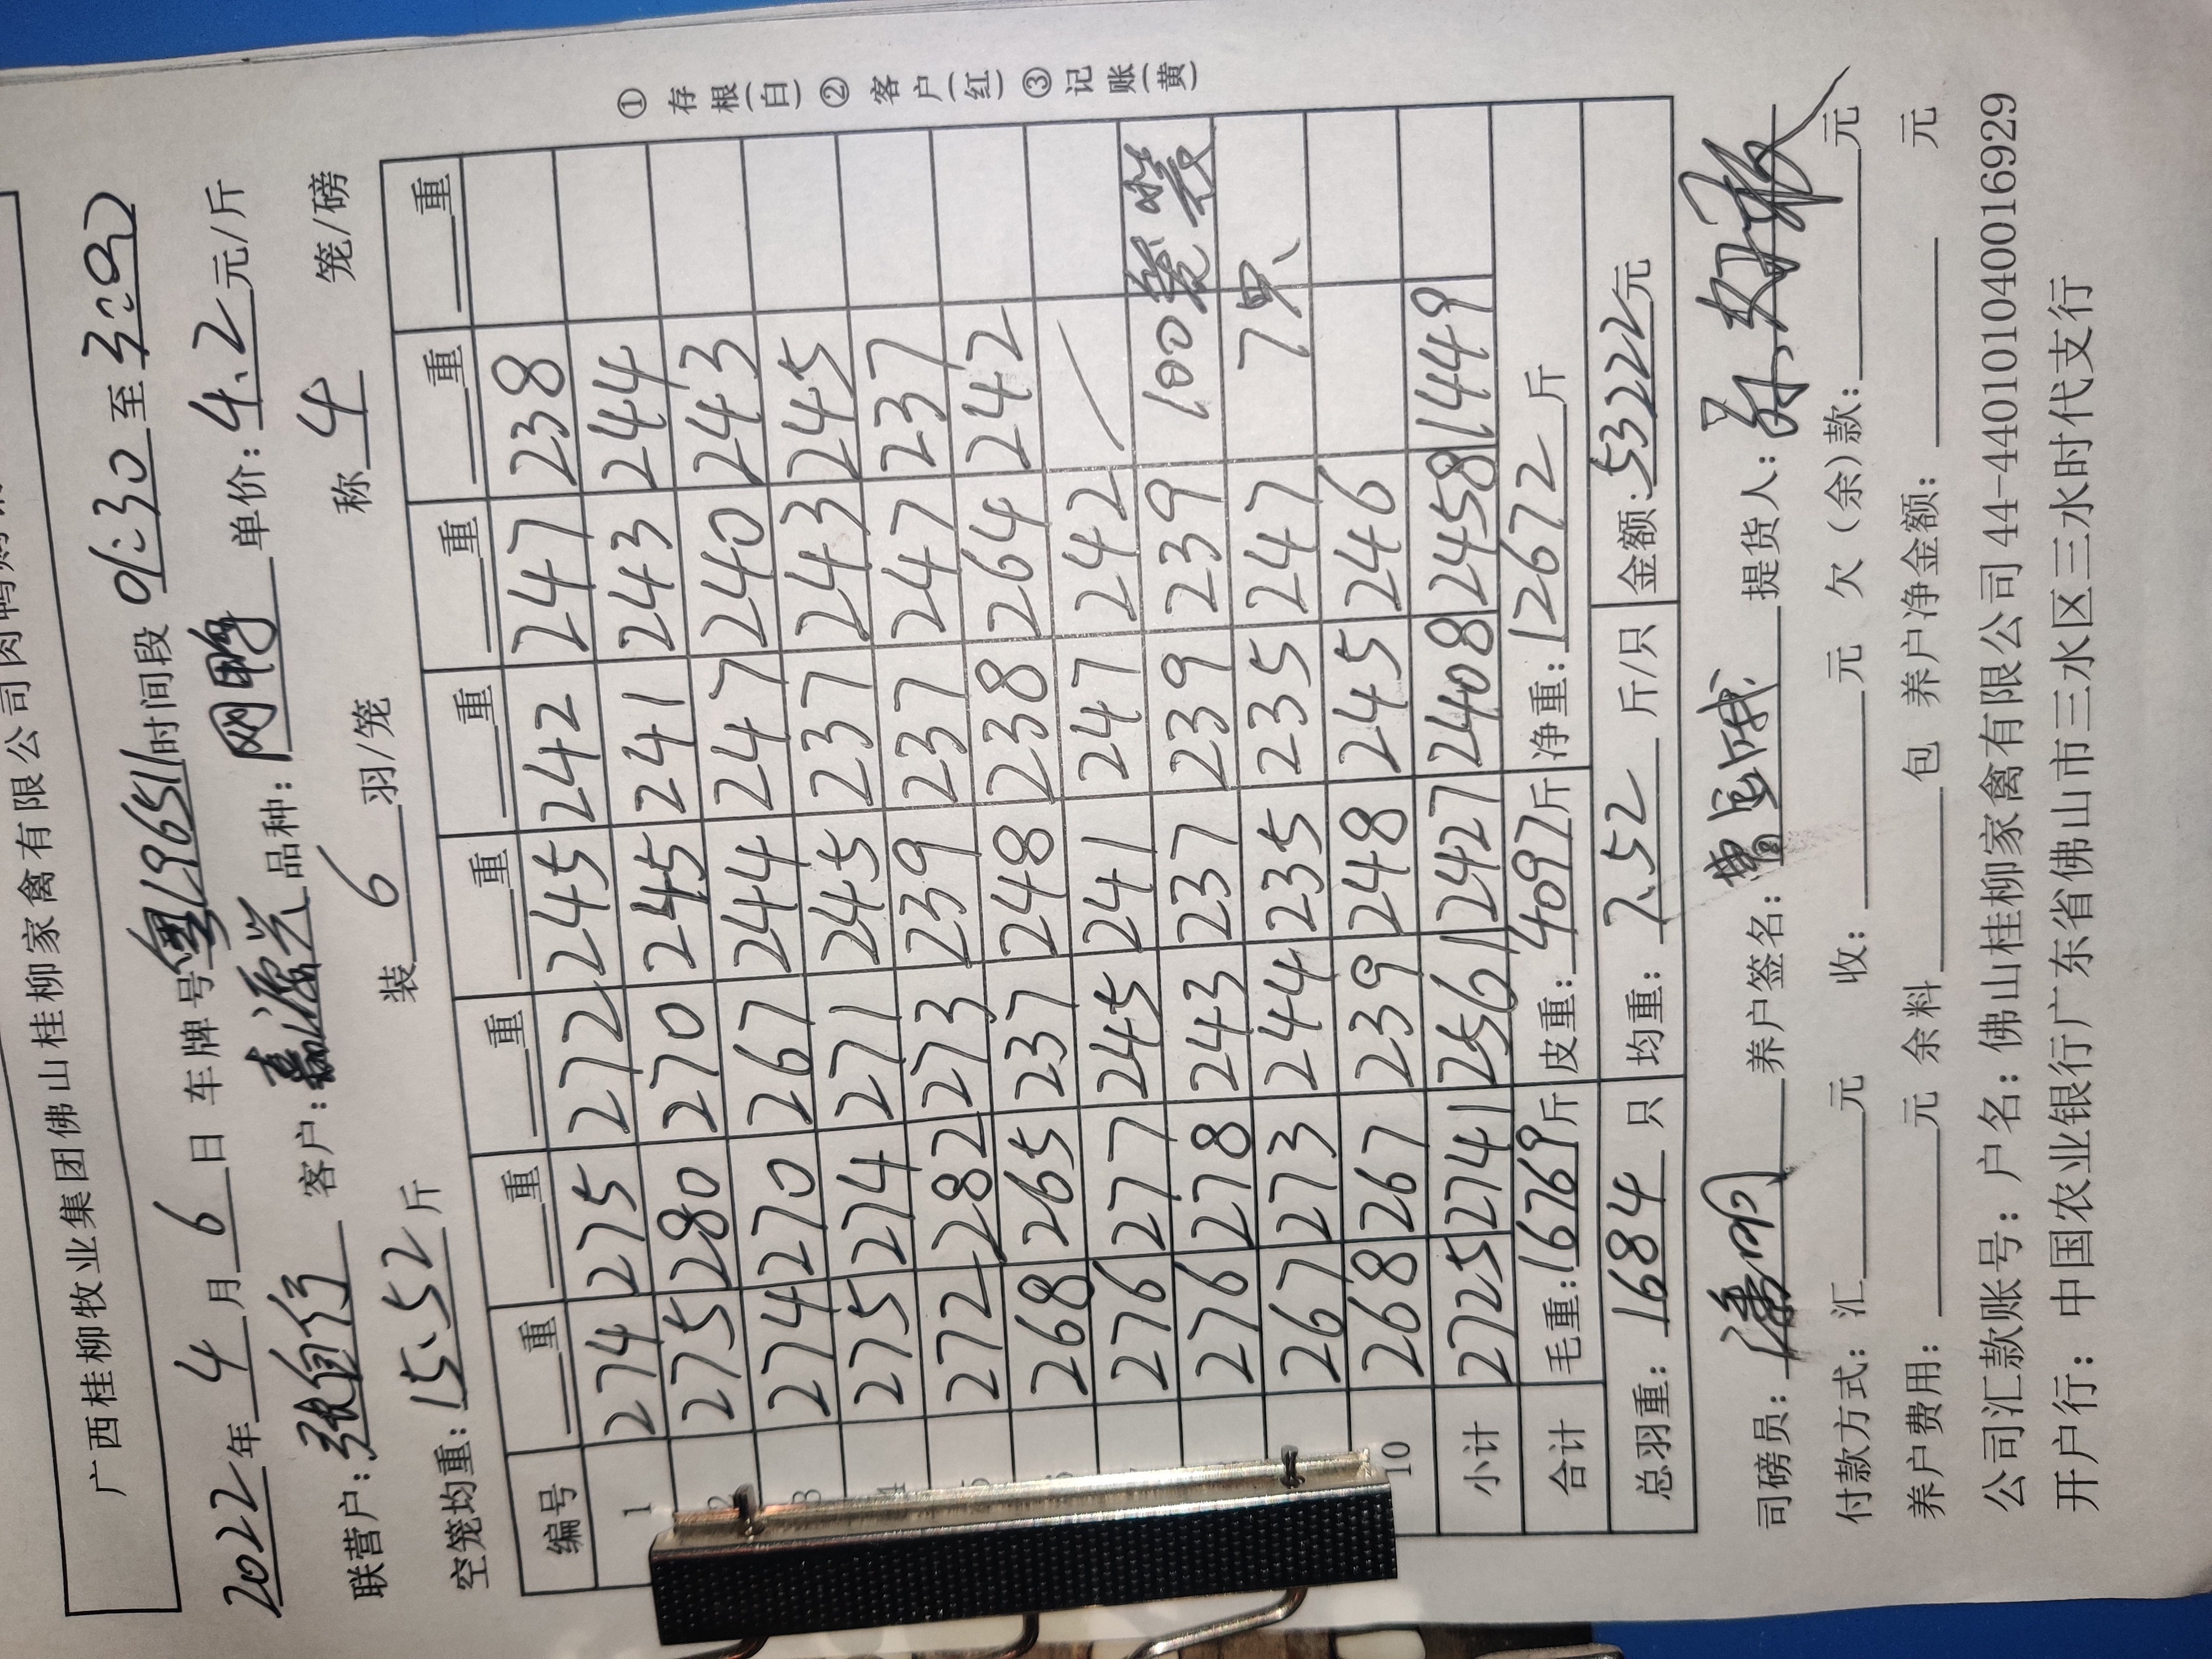 广西桂柳牧业集团佛山桂柳家禽有限公司肉鸭
2022年4月6日 车牌号粤L96511时间段 01:30至3:00
联营户:张自行 客户:嘉源兴 品种:网鸭 单价:4.2元/斤
空笼均重:15.52斤 装6羽/笼 称4笼/磅
编号 重 重 重 重 重 重 重 重
1 274 275 272 245 242 247 238
2 275 280 270 245 241 243 244
3 274 270 267 244 247 240 243
4 275 274 271 245 237 243 245
5 272 282 273 239 237 247 237
6 268 265 237 248 238 264 242
276 277 245 241 247 242
276 278 243 237 239 239 100笼装
267 273 244 235 235 247 7只
10 268 267 239 248 245 246
小计 2725 2741 2561 2427 2408 2458 1449
合计 毛重:16769斤 皮重:4097斤 净重:12672斤
总羽重:1684只 均重:7.52斤/只 金额:53222元
①存根(白)②客户(红)③记账(黄)
司磅员: 养户签名: 提货人:
付款方式:汇元 收:元 欠(余)款:元
养户费用:元 余料包 养户净金额:元
公司汇款账号:户名:佛山桂柳家禽有限公司44-440101040016929
开户行:中国农业银行广东省佛山市三水区三水时代支行